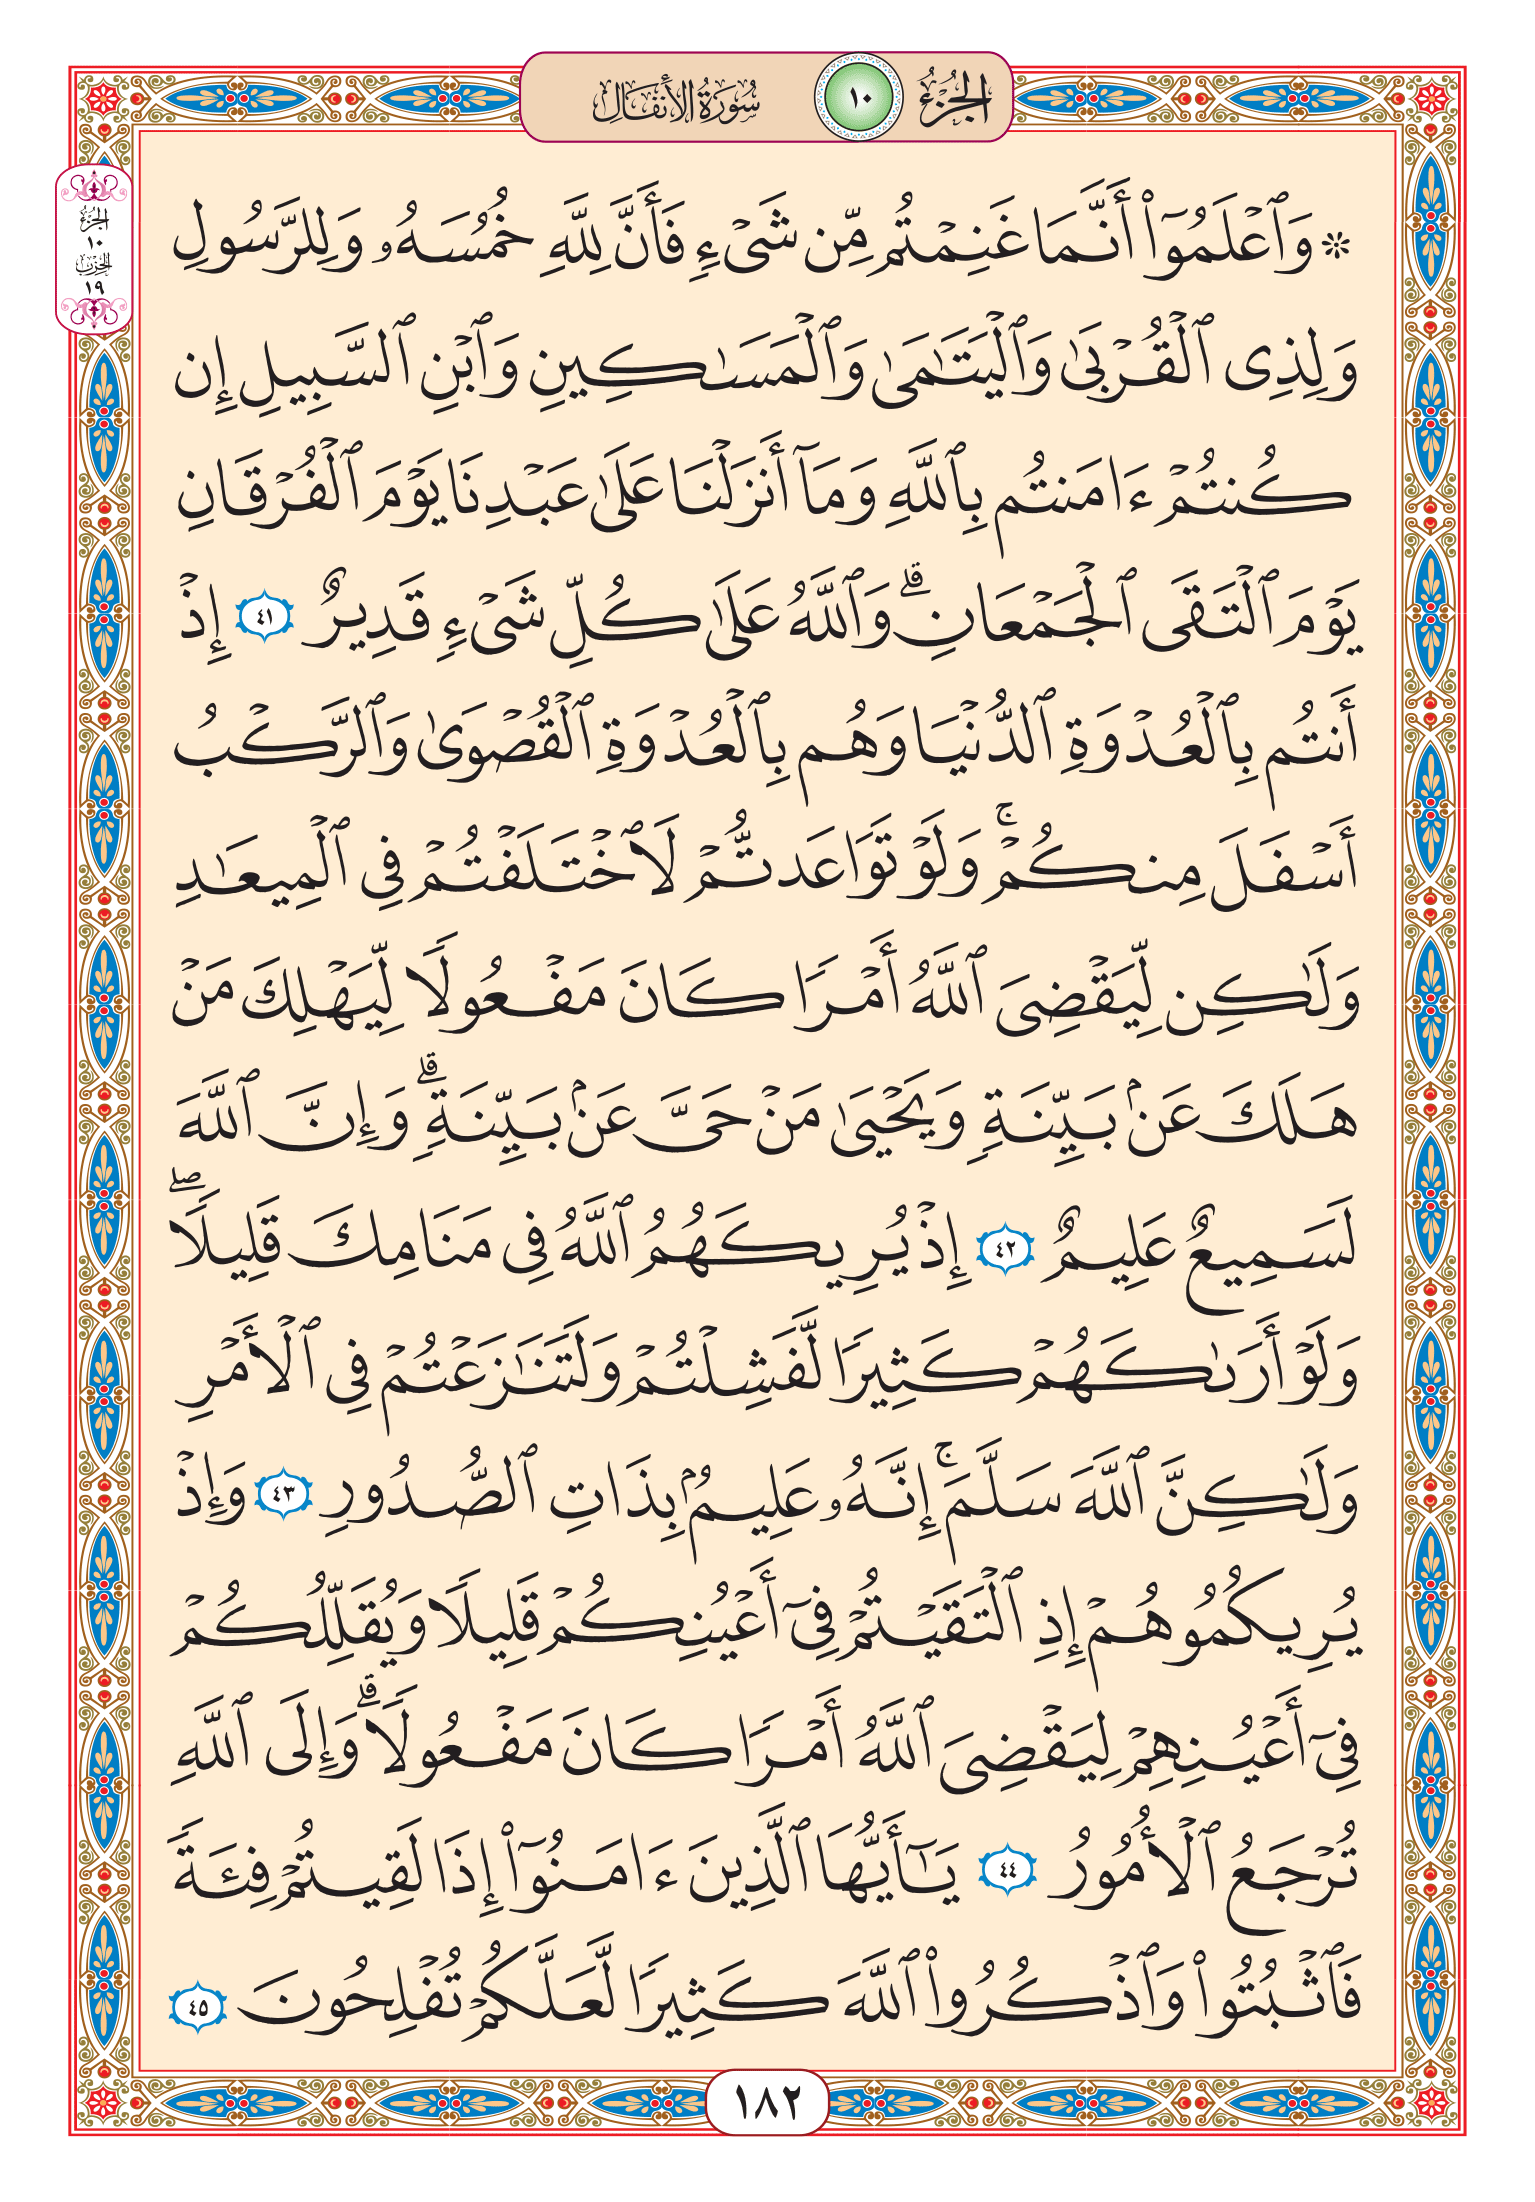 الجزء ١٠ سورة الأنفال
الجزء
١٠
الحزب
١٩
۞ وَٱعۡلَمُوٓاْ أَنَّمَا غَنِمۡتُم مِّن شَيۡءٖ فَأَنَّ لِلَّهِ خُمُسَهُۥ وَلِلرَّسُولِ
وَلِذِي ٱلۡقُرۡبَىٰ وَٱلۡيَتَٰمَىٰ وَٱلۡمَسَٰكِينِ وَٱبۡنِ ٱلسَّبِيلِ إِن
كُنتُمۡ ءَامَنتُم بِٱللَّهِ وَمَآ أَنزَلۡنَا عَلَىٰ عَبۡدِنَا يَوۡمَ ٱلۡفُرۡقَانِ
يَوۡمَ ٱلۡتَقَى ٱلۡجَمۡعَانِۗ وَٱللَّهُ عَلَىٰ كُلِّ شَيۡءٖ قَدِيرٌ ٤١ إِذۡ
أَنتُم بِٱلۡعُدۡوَةِ ٱلدُّنۡيَا وَهُم بِٱلۡعُدۡوَةِ ٱلۡقُصۡوَىٰ وَٱلرَّكۡبُ
أَسۡفَلَ مِنكُمۡۚ وَلَوۡ تَوَاعَدتُّمۡ لَٱخۡتَلَفۡتُمۡ فِي ٱلۡمِيعَٰدِ
وَلَٰكِن لِّيَقۡضِيَ ٱللَّهُ أَمۡرٗا كَانَ مَفۡعُولٗا لِّيَهۡلِكَ مَنۡ
هَلَكَ عَنۢ بَيِّنَةٖ وَيَحۡيَىٰ مَنۡ حَيَّ عَنۢ بَيِّنَةٖۗ وَإِنَّ ٱللَّهَ
لَسَمِيعٌ عَلِيمٌ ٤٢ إِذۡ يُرِيكَهُمُ ٱللَّهُ فِي مَنَامِكَ قَلِيلٗاۖ
وَلَوۡ أَرَىٰكَهُمۡ كَثِيرٗا لَّفَشِلۡتُمۡ وَلَتَنَٰزَعۡتُمۡ فِي ٱلۡأَمۡرِ
وَلَٰكِنَّ ٱللَّهَ سَلَّمَۚ إِنَّهُۥ عَلِيمُۢ بِذَاتِ ٱلصُّدُورِ ٤٣ وَإِذۡ
يُرِيكُمُوهُمۡ إِذِ ٱلۡتَقَيۡتُمۡ فِيٓ أَعۡيُنِكُمۡ قَلِيلٗا وَيُقَلِّلُكُمۡ
فِيٓ أَعۡيُنِهِمۡ لِيَقۡضِيَ ٱللَّهُ أَمۡرٗا كَانَ مَفۡعُولٗاۗ وَإِلَى ٱللَّهِ
تُرۡجَعُ ٱلۡأُمُورُ ٤٤ يَٰٓأَيُّهَا ٱلَّذِينَ ءَامَنُوٓاْ إِذَا لَقِيتُمۡ فِئَةٗ
فَٱثۡبُتُواْ وَٱذۡكُرُواْ ٱللَّهَ كَثِيرٗا لَّعَلَّكُمۡ تُفۡلِحُونَ ٤٥
١٨٢